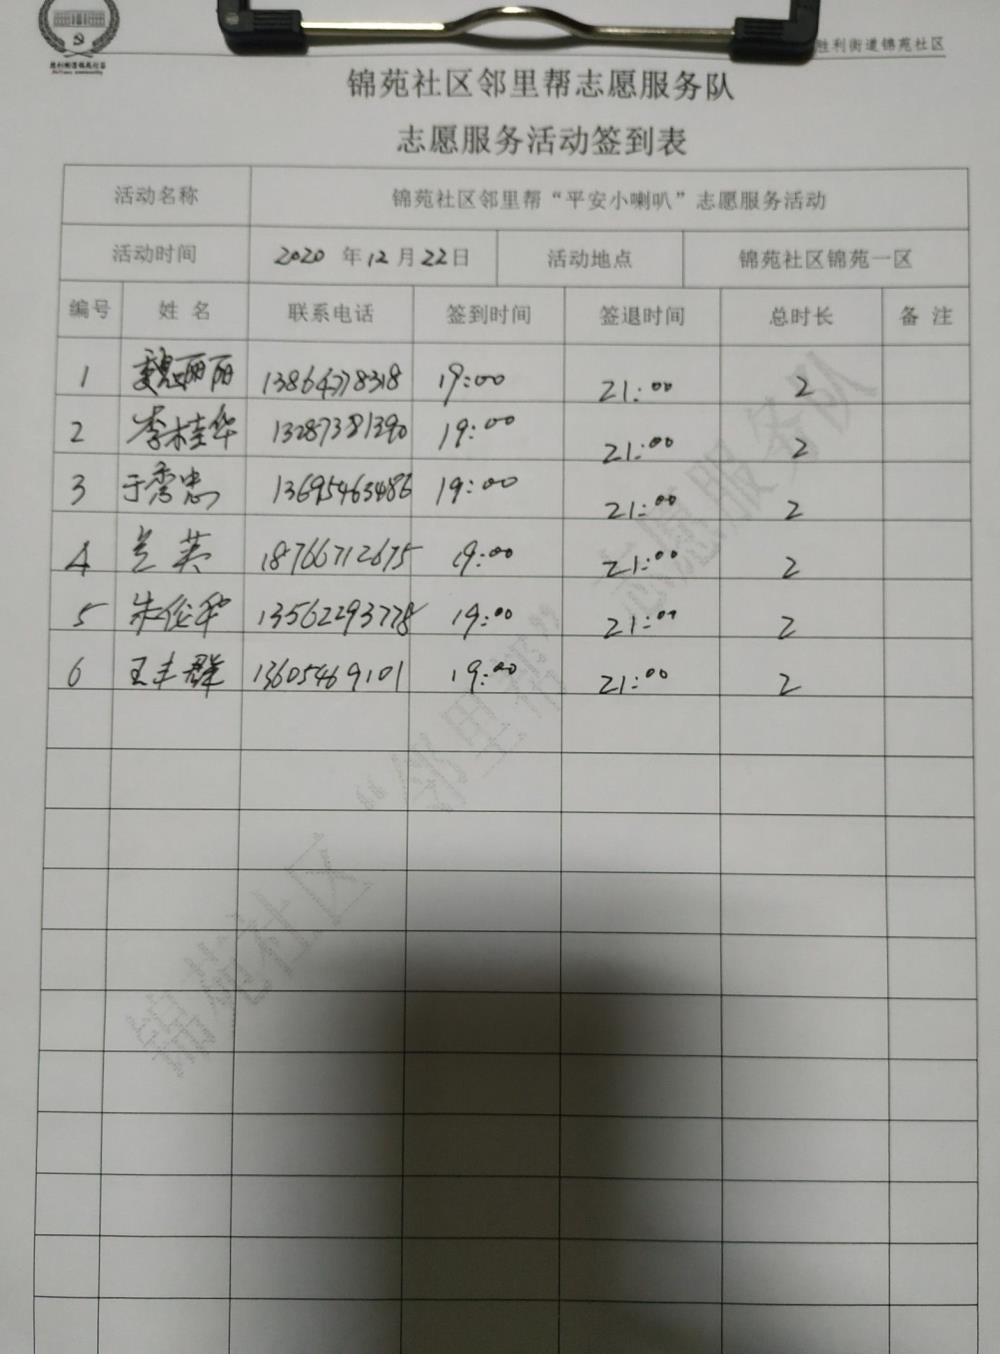 胜利街道锦苑社区
胜利街道锦苑社区
锦苑社区邻里帮志愿服务队
志愿服务活动签到表
活动名称 锦苑社区邻里帮“平安小喇叭”志愿服务活动
活动时间 2020 年 12 月 22 日 活动地点 锦苑社区锦苑一区
编号 姓 名 联系电话 签到时间 签退时间 总时长 备 注
1 魏丽丽 19:00 21:00 2
2 李桂华 13287381390 19:00 21:00 2
3 于秀忠 13695463486 19:00 21:00 2
4 兰英 18766712675 19:00 21:00 2
5 朱俊华 13562293778 19:00 21:00 2
6 王丰群 13605469101 19:00 21:00 2
锦苑社区“邻里帮”志愿服务队